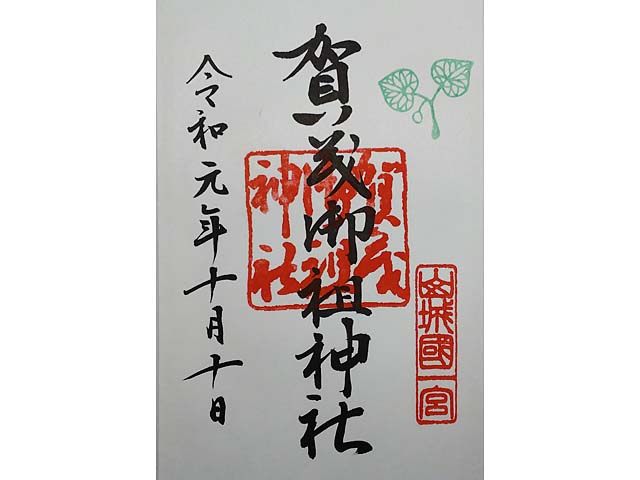 山城國一宮
賀茂御祖神社
賀茂
御祖
神社
令和元年十月十日